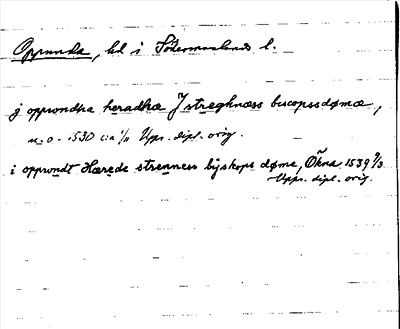 Oppunda, hd i Södermanlands l.
j opprondha heradhæ J stræghnæss biscopsdømæ,
u. o. 1530 Upps. dipl. orig.
i opprundt Hærede strenness byskops døme, Økna 1539 9/3
Upps. dipl. orig.